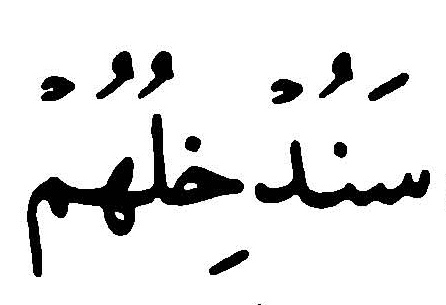 سَنُدْخِلُهُمْ